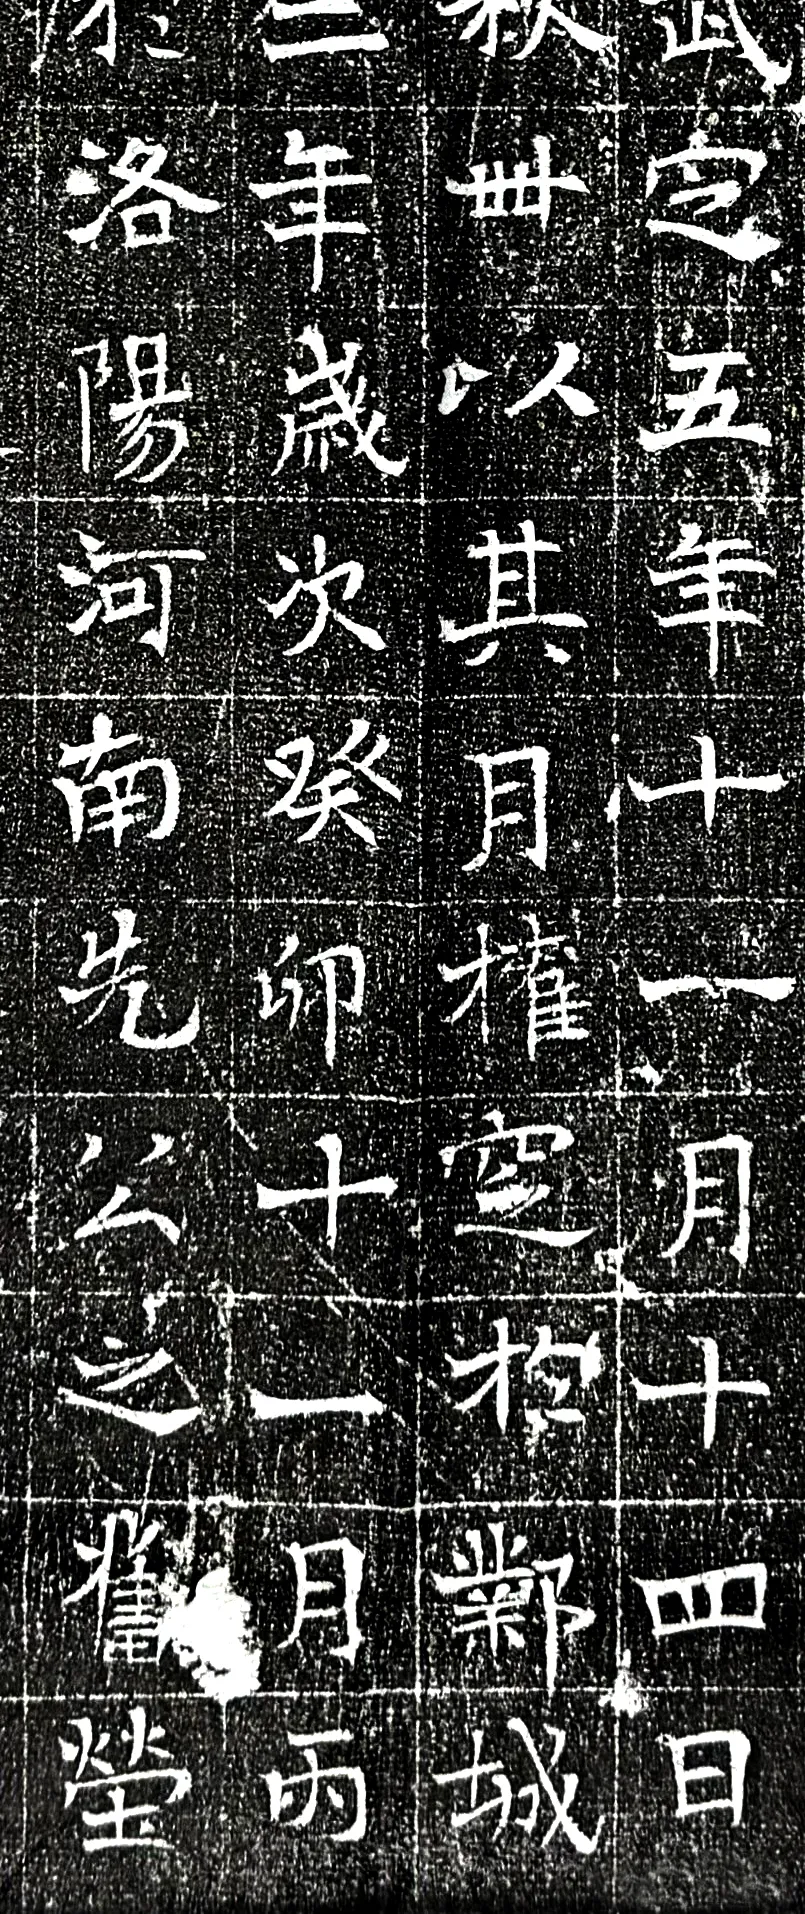 武定五年十一月十四日
秋卌以其月權窆於鄴城
三年歲次癸卯十一月丙
於洛陽河南先公之舊塋